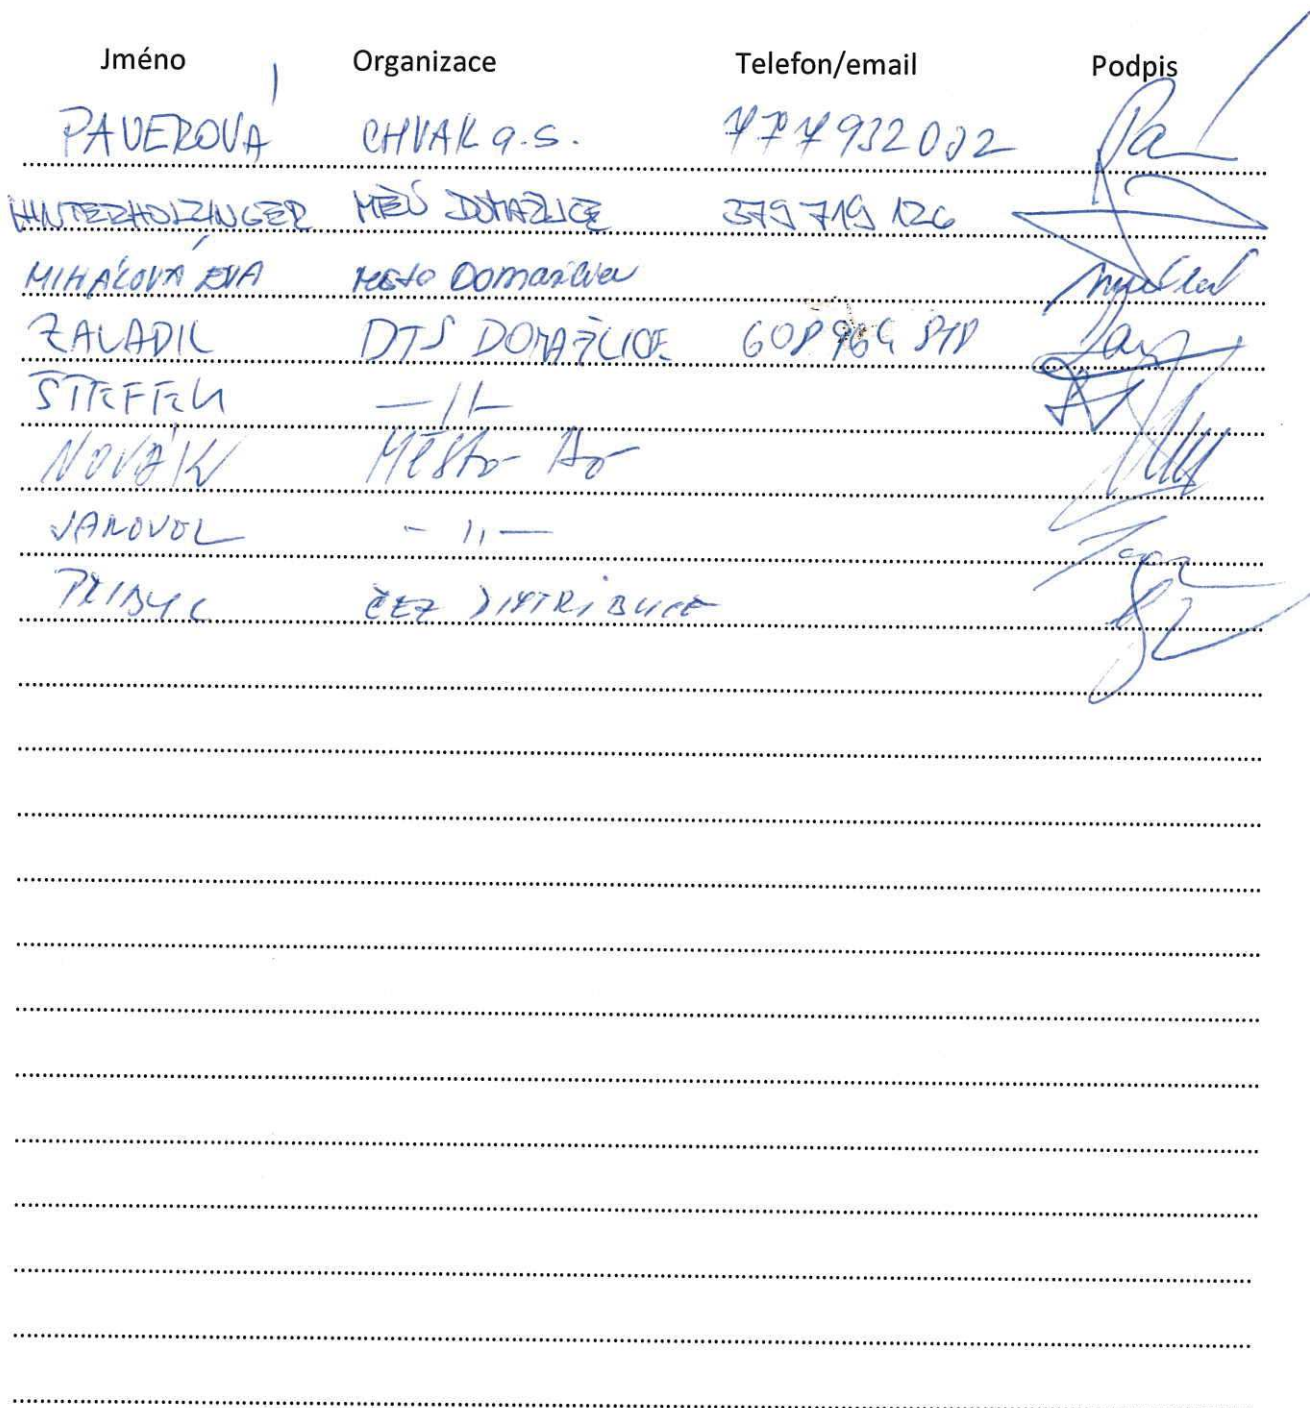 Jméno Organizace Telefon/email Podpis
PAVEROVÁ CHVAK a.s. 777932032
HINTERHOLZINGER MĚÚ DOMAŽLICE 379 719 126
MIHÁLOVÁ EVA Město Domažlice
ZALADIL DTS DOMAŽLICE 608
STEFFEN —//—
NOVÁK Město Do
JANOVOL — 11 —
PŘIBYL ČEZ DISTRIBUCE